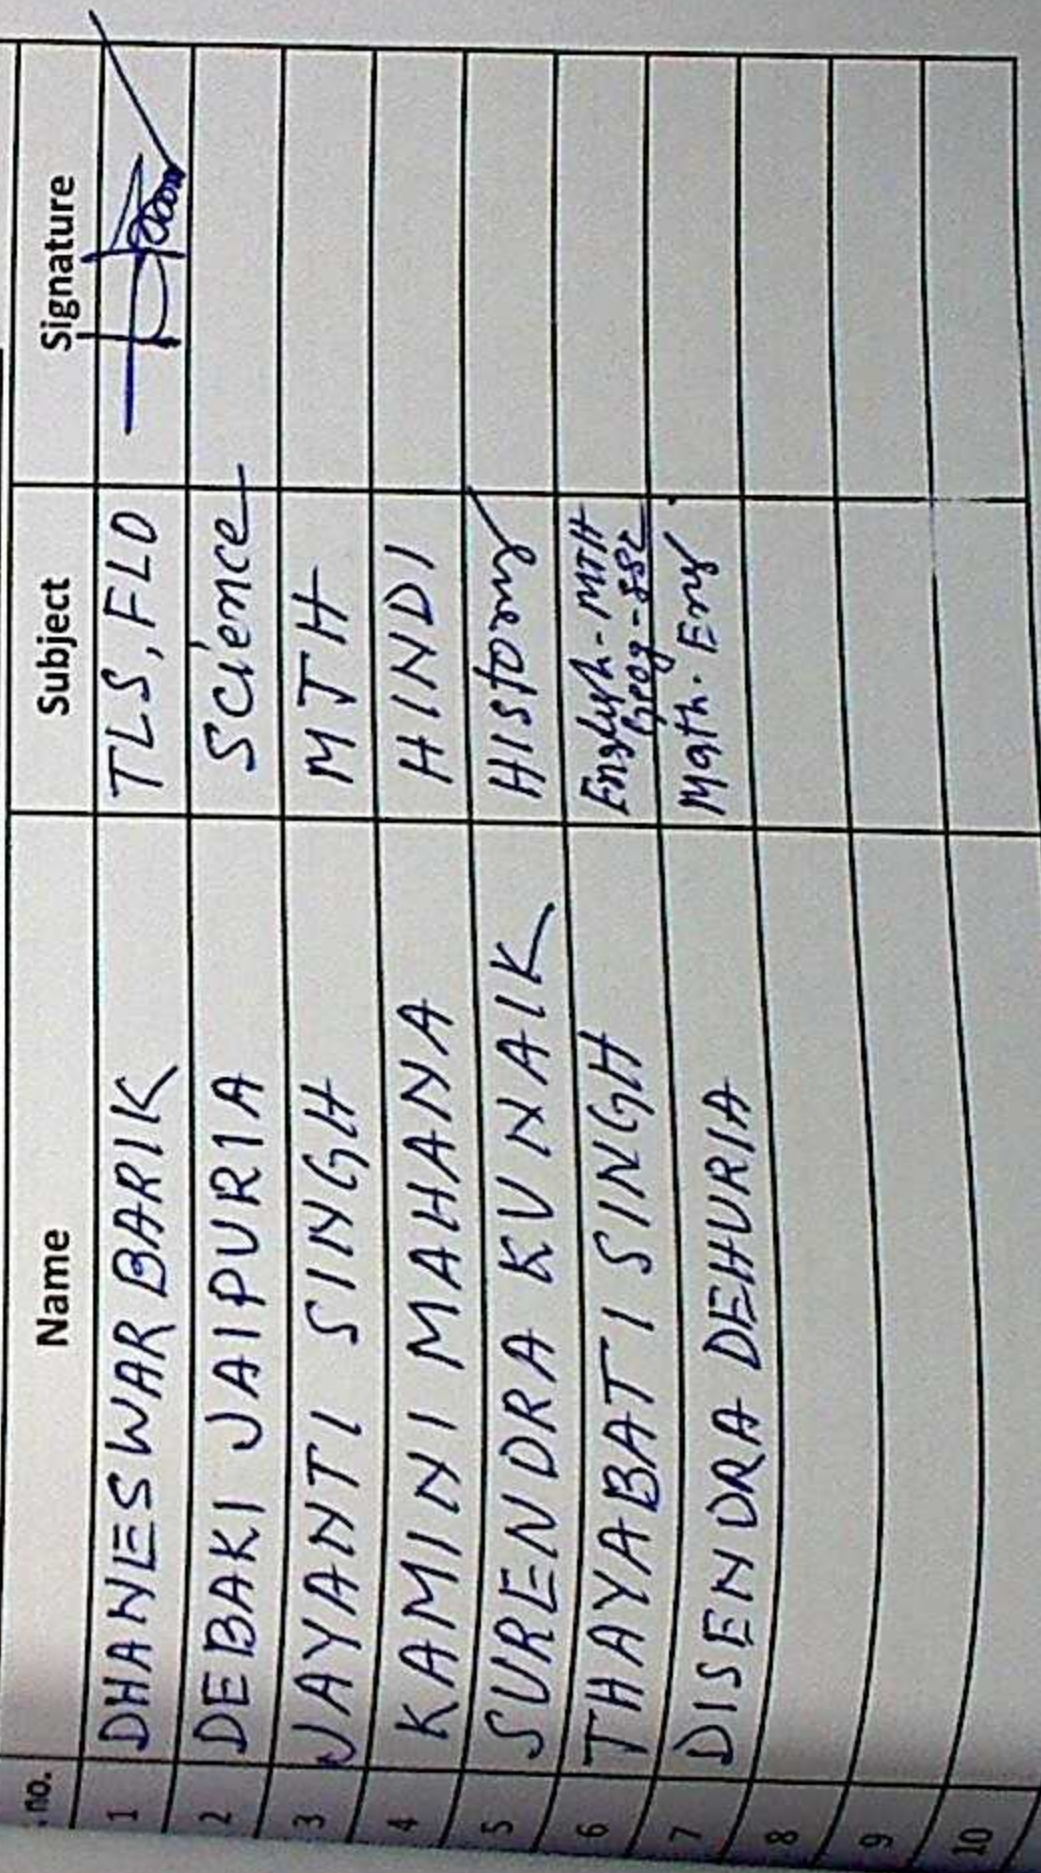 . no. Name Subject Signature
1 DHANESWAR BARIK TLS, FLD
2 DEBAKI JAIPURIA Science
3 JAYANTI SINGH MTH
4 KAMINI MAHANA HINDI
5 SURENDRA KU NAIK History
6 THAYABATI SINGH English - MTH
Geog - SSC
7 DISENDRA DEHURIA Math. Eng
8
9
10